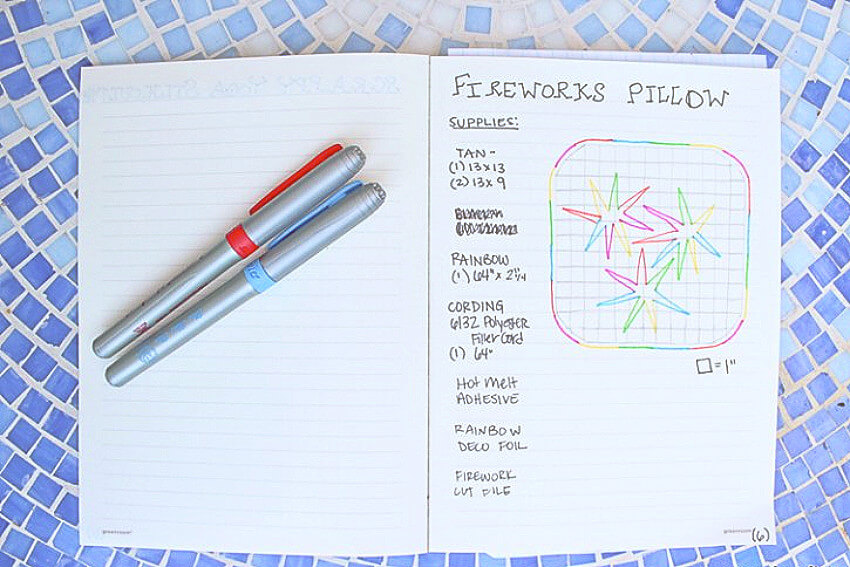 FIREWORKS PILLOW
SUPPLIES:
TAN -
(1) 13x13
(2) 13x9
RAINBOW
(1) 64" x 2 1/4
CORDING
6/32 Polyester
Filler Cord
(1) 64"
Hot Melt
ADHESIVE
RAINBOW
DECO FOIL
FIREWORK
CUT FILE
□ = 1"
(6)